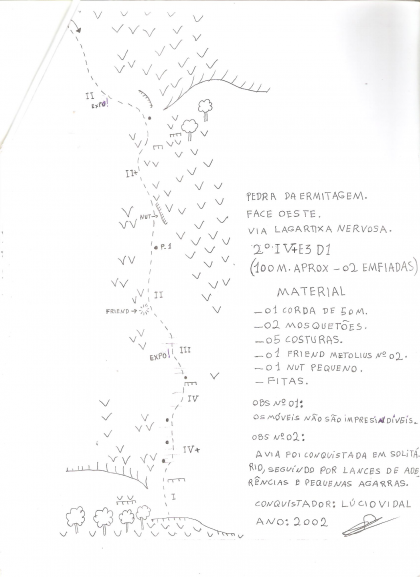 II
EXPO!
II+
NUT→
P.1
II
FRIEND→
EXPO!
III
IV
IV+
I
PEDRA DA ERMITAGEM.
FACE OESTE.
VIA LAGARTIXA NERVOSA.
2º.IV+E3 D1
(100 M. APROX - 02 ENFIADAS)
MATERIAL
-01 CORDA DE 50M.
-02 MOSQUETÕES.
-05 COSTURAS.
-01 FRIEND METOLIUS Nº 02.
-01 NUT PEQUENO.
-FITAS.
OBS Nº 01:
OS MÓVEIS NÃO SÃO IMPRESINDÍVEIS.
OBS Nº 02:
A VIA FOI CONQUISTADA EM SOLITÁ
RIO, SEGUINDO POR LANCES DE ADE
RÊNCIAS E PEQUENAS AGARRAS.
CONQUISTADOR: LÚCIO VIDAL
ANO: 2002